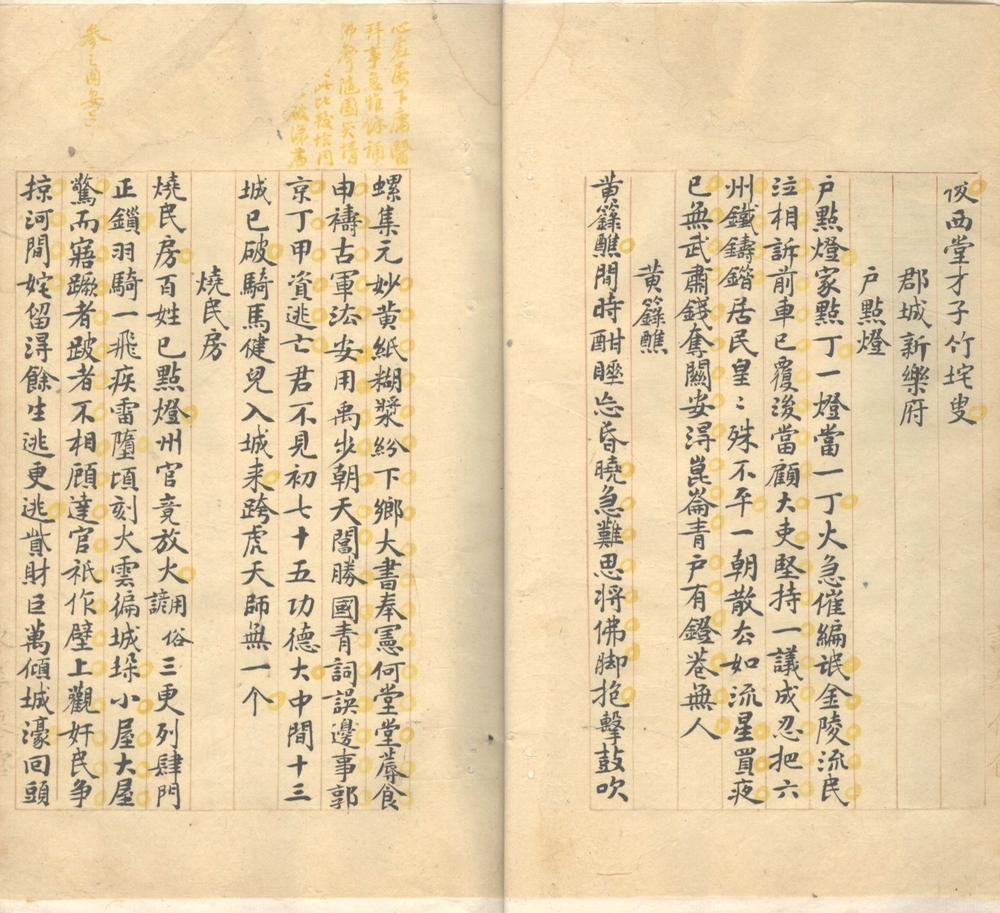 西堂才子竹垞叟
郡城新樂府
戶點燈
戶點燈家點丁一燈當一丁火急催編氓金陵流民
泣相訴前車已覆後當顧大吏堅持一議成忍把六
州鐵鑄錯居民皇〻殊不平一朝散公如流星買夜
已無武肅錢奪關安得崑崙青戶有鐙巷無人
黃籙醮
黃籙醮間時酣睡忘昏曉急難思將佛脚抱擊鼓吹
螺集元妙黃紙糊漿紛下鄉大書奉憲何堂堂蓐食
申禱古軍法安用禹步朝天閶勝國青詞誤邊事郭
京丁甲資逃亡君不見初七十五功德大中間十三
城已破騎馬健兒入城来跨虎天師無一个
燒民房
燒民房百姓已點燈州官竟放火用俗諺三更列肆門
正鎖羽騎一飛疾雷墮頃刻火雲徧城垛小屋大屋
驚而寤蹶者跛者不相顧達官祇作壁上觀奸民争
掠河間姹留得餘生逃更逃貲財巨萬傾城濠回頭
下庸醫
拜事急惟誦
佛聲隨園